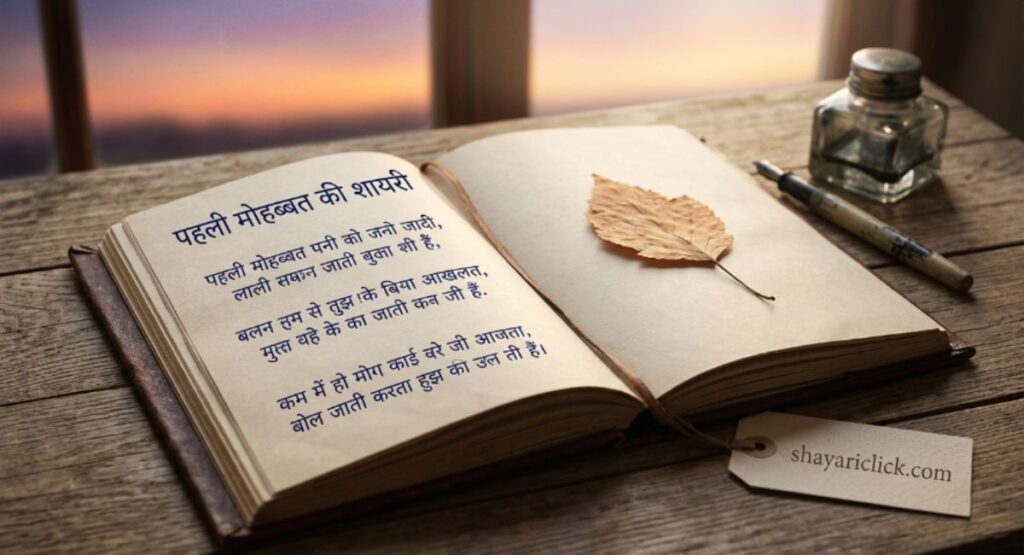 पहली मोहब्बत की शायरी
पहली मोहब्बत पनी को जनो जादी,
लाली सकन जाती बुका शी हैं,
बलन हम से तुझ के बिया आखलत,
मुत्त वहे के का जाती कब जी हैं.
कम में हो मोग कार्ड वरे जी आजता,
बोल जाती करता हुझ का उल ती हैं।
shayariclick.com